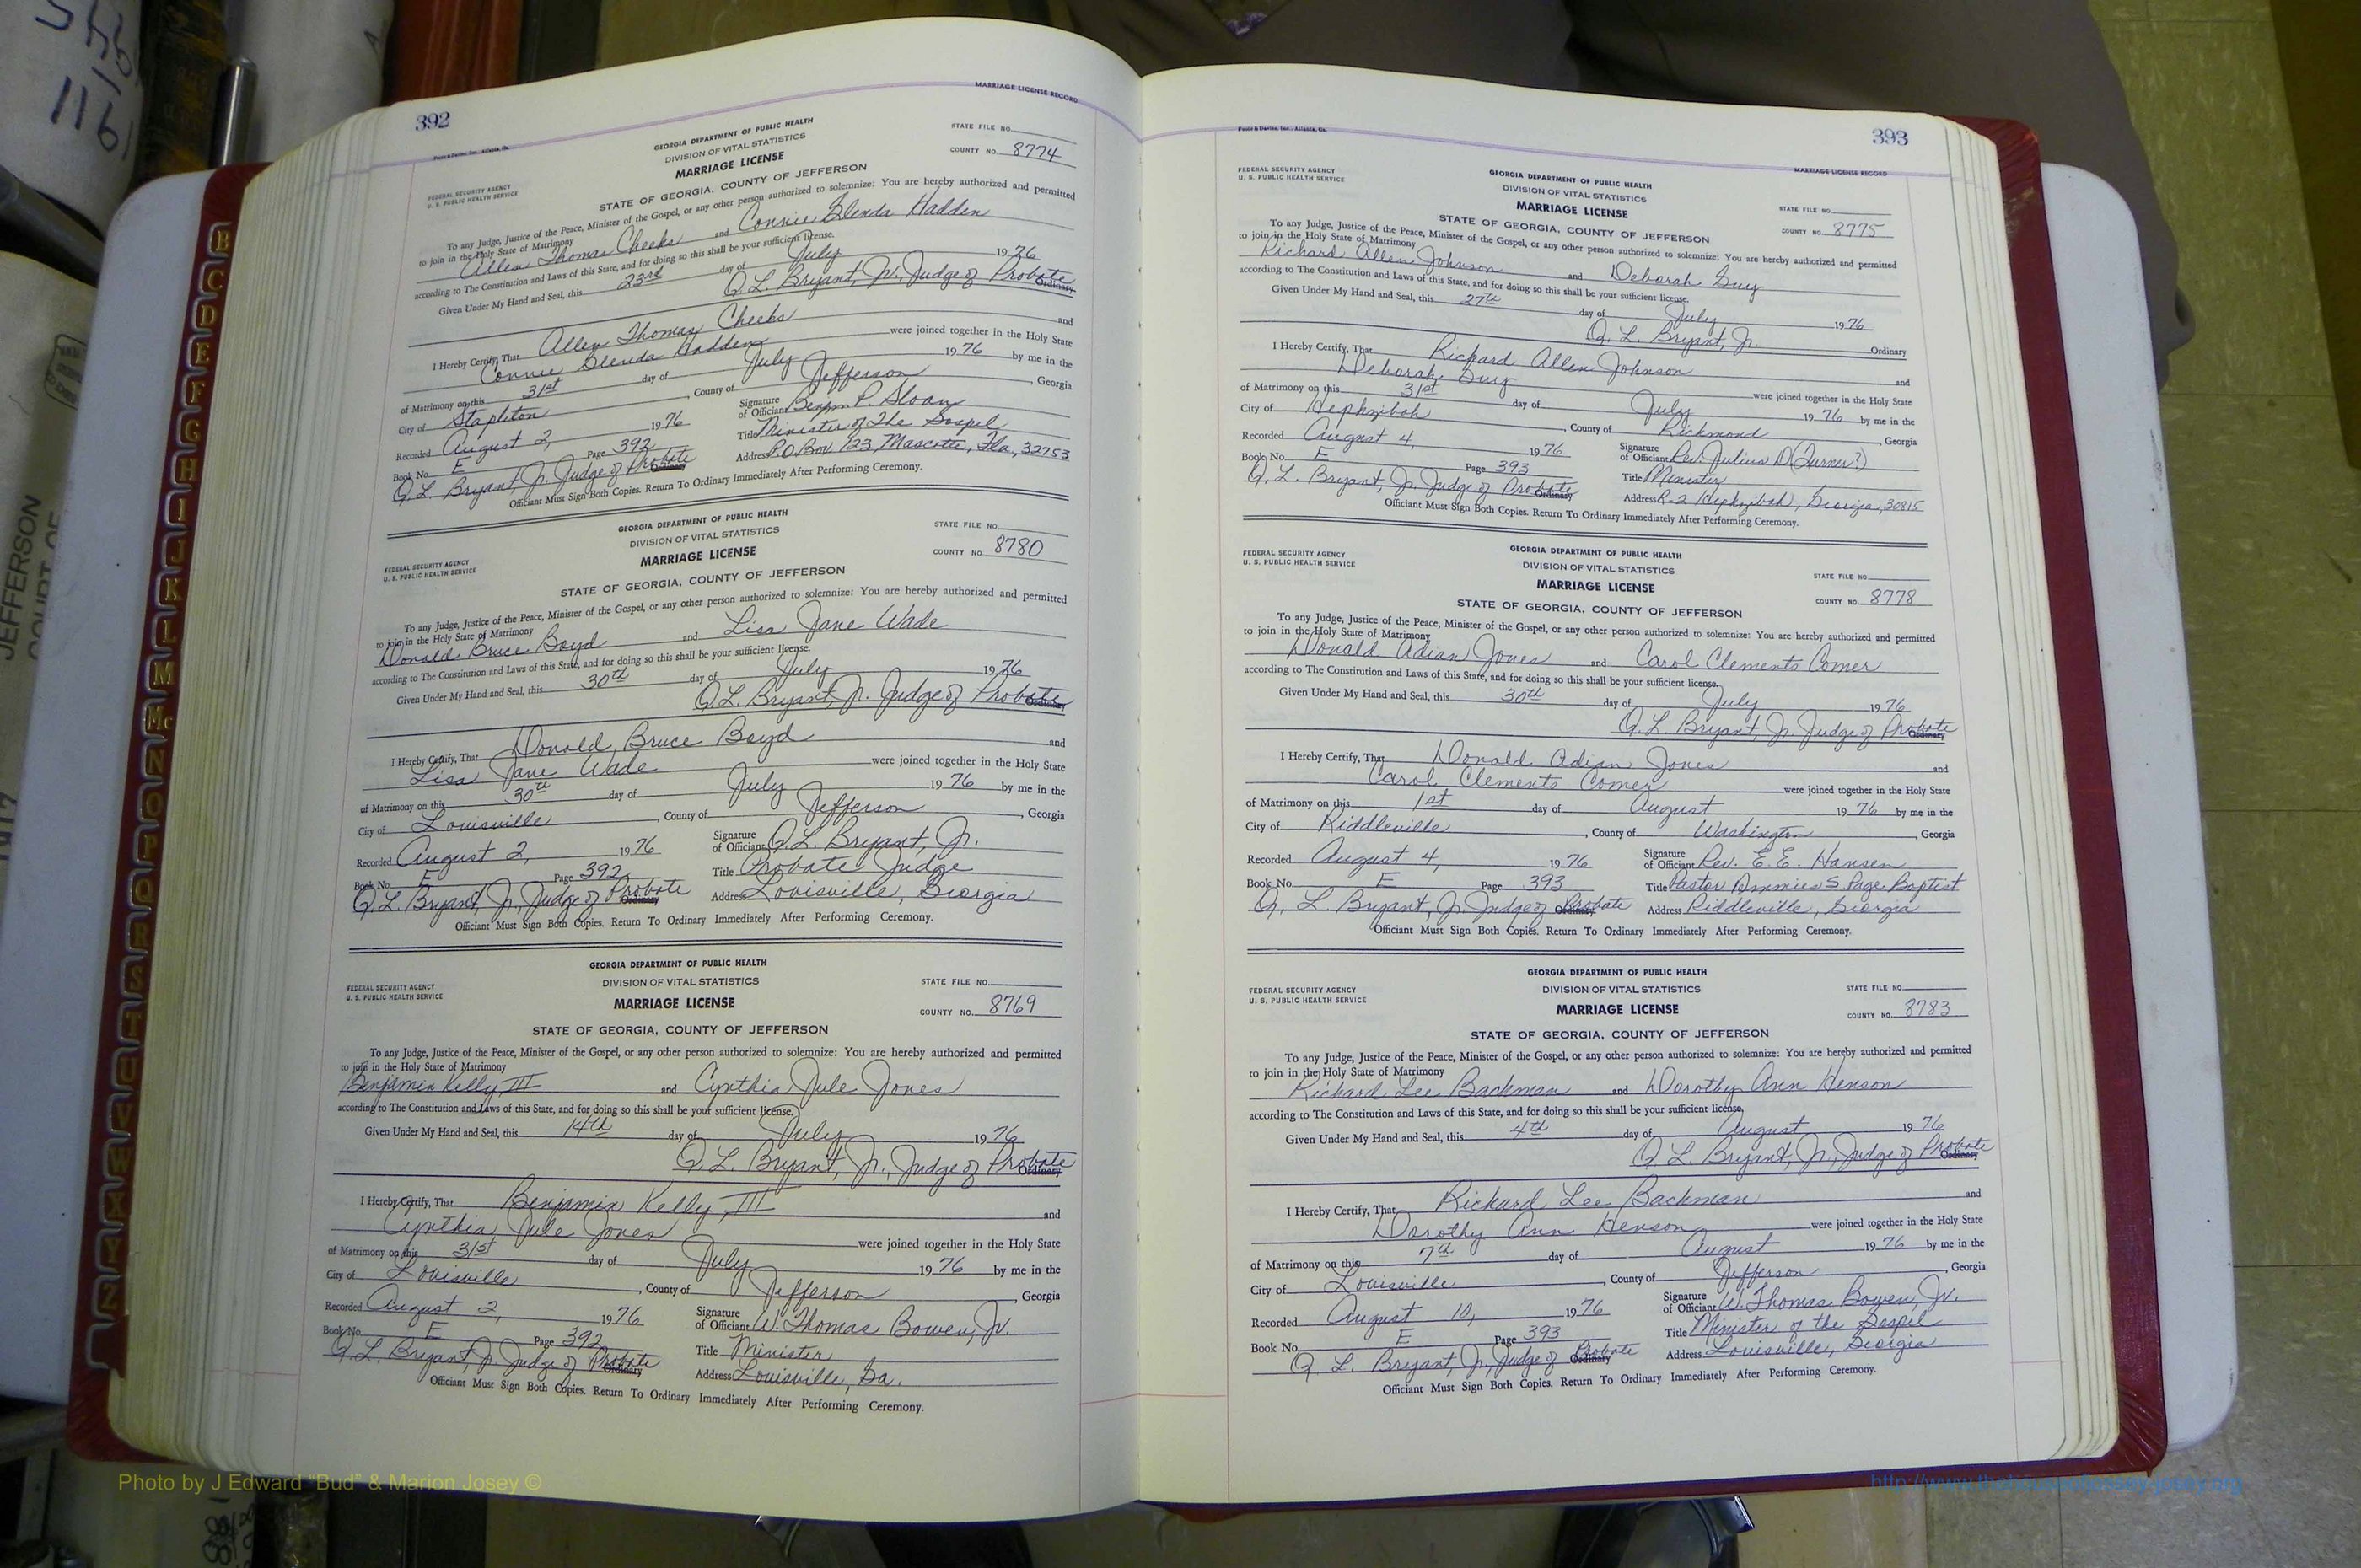 392
MARRIAGE LICENSE RECORD
Foote & Davies, Inc., Atlanta, Ga.
GEORGIA DEPARTMENT OF PUBLIC HEALTH
DIVISION OF VITAL STATISTICS
MARRIAGE LICENSE
STATE OF GEORGIA, COUNTY OF JEFFERSON
FEDERAL SECURITY AGENCY
U. S. PUBLIC HEALTH SERVICE
STATE FILE NO.
COUNTY NO. 8774
To any Judge, Justice of the Peace, Minister of the Gospel, or any other person authorized to solemnize: You are hereby authorized and permitted
to join in the Holy State of Matrimony
Allen Thomas Cheeks and Connie Glenda Hadden
according to The Constitution and Laws of this State, and for doing so this shall be your sufficient license.
Given Under My Hand and Seal, this 23rd day of July 1976
Q. L. Bryant, Jr. Judge of Probate
Ordinary
I Hereby Certify, That Allen Thomas Cheeks and
Connie Glenda Hadden were joined together in the Holy State
of Matrimony on this 31st day of July 1976 by me in the
City of Stapleton, County of Jefferson, Georgia
Recorded August 2, 1976
Signature of Officiant P. Sloan
Book No. E Page 392
Title Minister of The Gospel
Q. L. Bryant, Jr. Judge of Probate
Ordinary
Address P.O. Box 123, Mascotte, Fla., 32753
Officiant Must Sign Both Copies. Return To Ordinary Immediately After Performing Ceremony.
GEORGIA DEPARTMENT OF PUBLIC HEALTH
DIVISION OF VITAL STATISTICS
MARRIAGE LICENSE
STATE OF GEORGIA, COUNTY OF JEFFERSON
FEDERAL SECURITY AGENCY
U. S. PUBLIC HEALTH SERVICE
STATE FILE NO.
COUNTY NO. 8780
To any Judge, Justice of the Peace, Minister of the Gospel, or any other person authorized to solemnize: You are hereby authorized and permitted
to join in the Holy State of Matrimony
Donald Bruce Boyd and Lisa Jane Wade
according to The Constitution and Laws of this State, and for doing so this shall be your sufficient license.
Given Under My Hand and Seal, this 30th day of July 1976
Q. L. Bryant, Jr. Judge of Probate
Ordinary
I Hereby Certify, That Donald Bruce Boyd and
Lisa Jane Wade were joined together in the Holy State
of Matrimony on this 30th day of July 1976 by me in the
City of Louisville, County of Jefferson, Georgia
Recorded August 2, 1976
Signature of Officiant Q. L. Bryant, Jr.
Book No. E Page 392
Title Probate Judge
Q. L. Bryant, Jr., Judge of Probate
Ordinary
Address Louisville, Georgia
Officiant Must Sign Both Copies. Return To Ordinary Immediately After Performing Ceremony.
GEORGIA DEPARTMENT OF PUBLIC HEALTH
DIVISION OF VITAL STATISTICS
MARRIAGE LICENSE
STATE OF GEORGIA, COUNTY OF JEFFERSON
FEDERAL SECURITY AGENCY
U. S. PUBLIC HEALTH SERVICE
STATE FILE NO.
COUNTY NO. 8769
To any Judge, Justice of the Peace, Minister of the Gospel, or any other person authorized to solemnize: You are hereby authorized and permitted
to join in the Holy State of Matrimony
Benjamin Kelly, III and Cynthia Jule Jones
according to The Constitution and Laws of this State, and for doing so this shall be your sufficient license.
Given Under My Hand and Seal, this 14th day of July 1976
Q. L. Bryant, Jr., Judge of Probate
Ordinary
I Hereby Certify, That Benjamin Kelly, III and
Cynthia Jule Jones were joined together in the Holy State
of Matrimony on this 31st day of July 1976 by me in the
City of Louisville, County of Jefferson, Georgia
Recorded August 2, 1976
Signature of Officiant W. Thomas Bowen, Jr.
Book No. E Page 392
Title Minister
Q. L. Bryant, Jr. Judge of Probate
Ordinary
Address Louisville, Ga.
Officiant Must Sign Both Copies. Return To Ordinary Immediately After Performing Ceremony.
393
Foote & Davies, Inc., Atlanta, Ga.
MARRIAGE LICENSE RECORD
GEORGIA DEPARTMENT OF PUBLIC HEALTH
DIVISION OF VITAL STATISTICS
MARRIAGE LICENSE
STATE OF GEORGIA, COUNTY OF JEFFERSON
FEDERAL SECURITY AGENCY
U. S. PUBLIC HEALTH SERVICE
STATE FILE NO.
COUNTY NO. 8775
To any Judge, Justice of the Peace, Minister of the Gospel, or any other person authorized to solemnize: You are hereby authorized and permitted
to join in the Holy State of Matrimony
Richard Allen Johnson and Deborah Guy
according to The Constitution and Laws of this State, and for doing so this shall be your sufficient license.
Given Under My Hand and Seal, this 27th day of July 1976
Q. L. Bryant, Jr.
Ordinary
I Hereby Certify, That Richard Allen Johnson and
Deborah Guy were joined together in the Holy State
of Matrimony on this 31st day of July 1976 by me in the
City of Hephzibah, County of Richmond, Georgia
Recorded August 4, 1976
Signature of Officiant Rev. Julius D. (Turner?)
Book No. E Page 393
Title Minister
Q. L. Bryant, Jr. Judge of Probate
Ordinary
Address R-2 Hephzibah, Georgia, 30815
Officiant Must Sign Both Copies. Return To Ordinary Immediately After Performing Ceremony.
GEORGIA DEPARTMENT OF PUBLIC HEALTH
DIVISION OF VITAL STATISTICS
MARRIAGE LICENSE
STATE OF GEORGIA, COUNTY OF JEFFERSON
FEDERAL SECURITY AGENCY
U. S. PUBLIC HEALTH SERVICE
STATE FILE NO.
COUNTY NO. 8778
To any Judge, Justice of the Peace, Minister of the Gospel, or any other person authorized to solemnize: You are hereby authorized and permitted
to join in the Holy State of Matrimony
Donald Adian Jones and Carol Clements Comer
according to The Constitution and Laws of this State, and for doing so this shall be your sufficient license.
Given Under My Hand and Seal, this 30th day of July 1976
Q. L. Bryant, Jr. Judge of Probate
Ordinary
I Hereby Certify, That Donald Adian Jones and
Carol Clements Comer were joined together in the Holy State
of Matrimony on this 1st day of August 1976 by me in the
City of Riddleville, County of Washington, Georgia
Recorded August 4, 1976
Signature of Officiant Rev. E. E. Hansen
Book No. E Page 393
Title Pastor S. Page Baptist
Q. L. Bryant, Jr. Judge of Probate
Ordinary
Address Riddleville, Georgia
Officiant Must Sign Both Copies. Return To Ordinary Immediately After Performing Ceremony.
GEORGIA DEPARTMENT OF PUBLIC HEALTH
DIVISION OF VITAL STATISTICS
MARRIAGE LICENSE
STATE OF GEORGIA, COUNTY OF JEFFERSON
FEDERAL SECURITY AGENCY
U. S. PUBLIC HEALTH SERVICE
STATE FILE NO.
COUNTY NO. 8783
To any Judge, Justice of the Peace, Minister of the Gospel, or any other person authorized to solemnize: You are hereby authorized and permitted
to join in the Holy State of Matrimony
Richard Lee Backman and Dorothy Ann Henson
according to The Constitution and Laws of this State, and for doing so this shall be your sufficient license.
Given Under My Hand and Seal, this 4th day of August 1976
Q. L. Bryant, Jr., Judge of Probate
Ordinary
I Hereby Certify, That Richard Lee Backman and
Dorothy Ann Henson were joined together in the Holy State
of Matrimony on this 7th day of August 1976 by me in the
City of Louisville, County of Jefferson, Georgia
Recorded August 10, 1976
Signature of Officiant W. Thomas Bowen, Jr.
Book No. E Page 393
Title Minister of the Gospel
Q. L. Bryant, Jr., Judge of Probate
Ordinary
Address Louisville, Georgia
Officiant Must Sign Both Copies. Return To Ordinary Immediately After Performing Ceremony.
B
C
D
E
F
G
H
I
J
K
L
M
Mc
N
O
P
Q
R
S
T
U
V
W
X
Y
Z
JEFFERSON
COURT OF
1161
Photo by J Edward "Bud" & Marion Josey ©